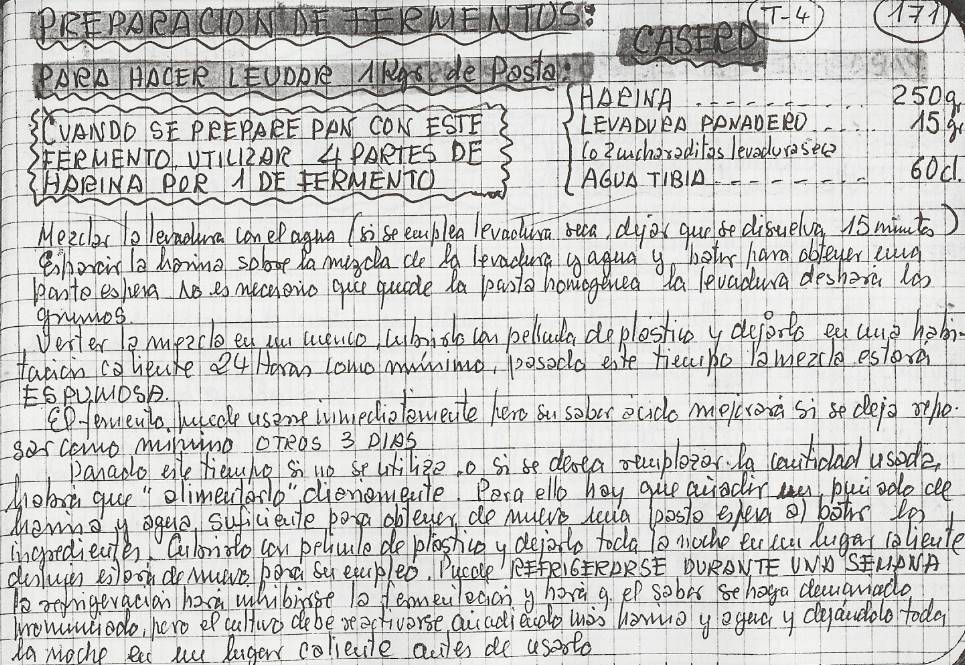 PREPARACION DE FERMENTOS:
T-4
171
CASERO
PARA HACER LEUDAR 1 Kgs de Pasta:
CUANDO SE PREPARE PAN CON ESTE
FERMENTO, UTILIZAR 4 PARTES DE
HARINA POR 1 DE FERMENTO
HARINA - - - - - - - - . . . 250 gr
LEVADURA PANADERO . . . . 15 gr
(o 2 cucharaditas levadura seca
AGUA TIBIA - - - - - - - . . 60 cl.
Mezclar la levadura con el agua (si se emplea levadura seca, dejar que se disuelva 15 minutos)
Esparcir la harina sobre la mezcla de la levadura y agua y batir para obtener una
pasta espesa no es necesario que quede la pasta homogénea la levadura deshará los
grumos.
Verter la mezcla en un cuenco, cubrirlo con película de plástico y dejarlo en una habi-
tación caliente 24 Horas como mínimo, pasado este tiempo la mezcla estará
ESPUMOSA.
El fermento, puede usarse inmediatamente pero su sabor ácido mejorará si se deja repo-
sar como mínimo OTROS 3 DIAS
Pasado este tiempo si no se utiliza, o si se desea remplazar la cantidad usada,
habrá que "alimentarlo" diariamente. Para ello hay que añadir un puñado de
harina y agua suficiente para obtener de nuevo una pasta espesa al batir los
ingredientes. Cubrirlo con película de plástico y dejarlo toda la noche en un lugar caliente
después estará de nuevo para su empleo. Puede REFRIGERARSE DURANTE UNA SEMANA
la refrigeración hará inhibirse la fermentación y hará q el sabor se haga demasiado
pronunciado, pero el cultivo debe reactivarse añadiendo más harina y agua y dejándolo toda
la noche en un lugar caliente antes de usarlo